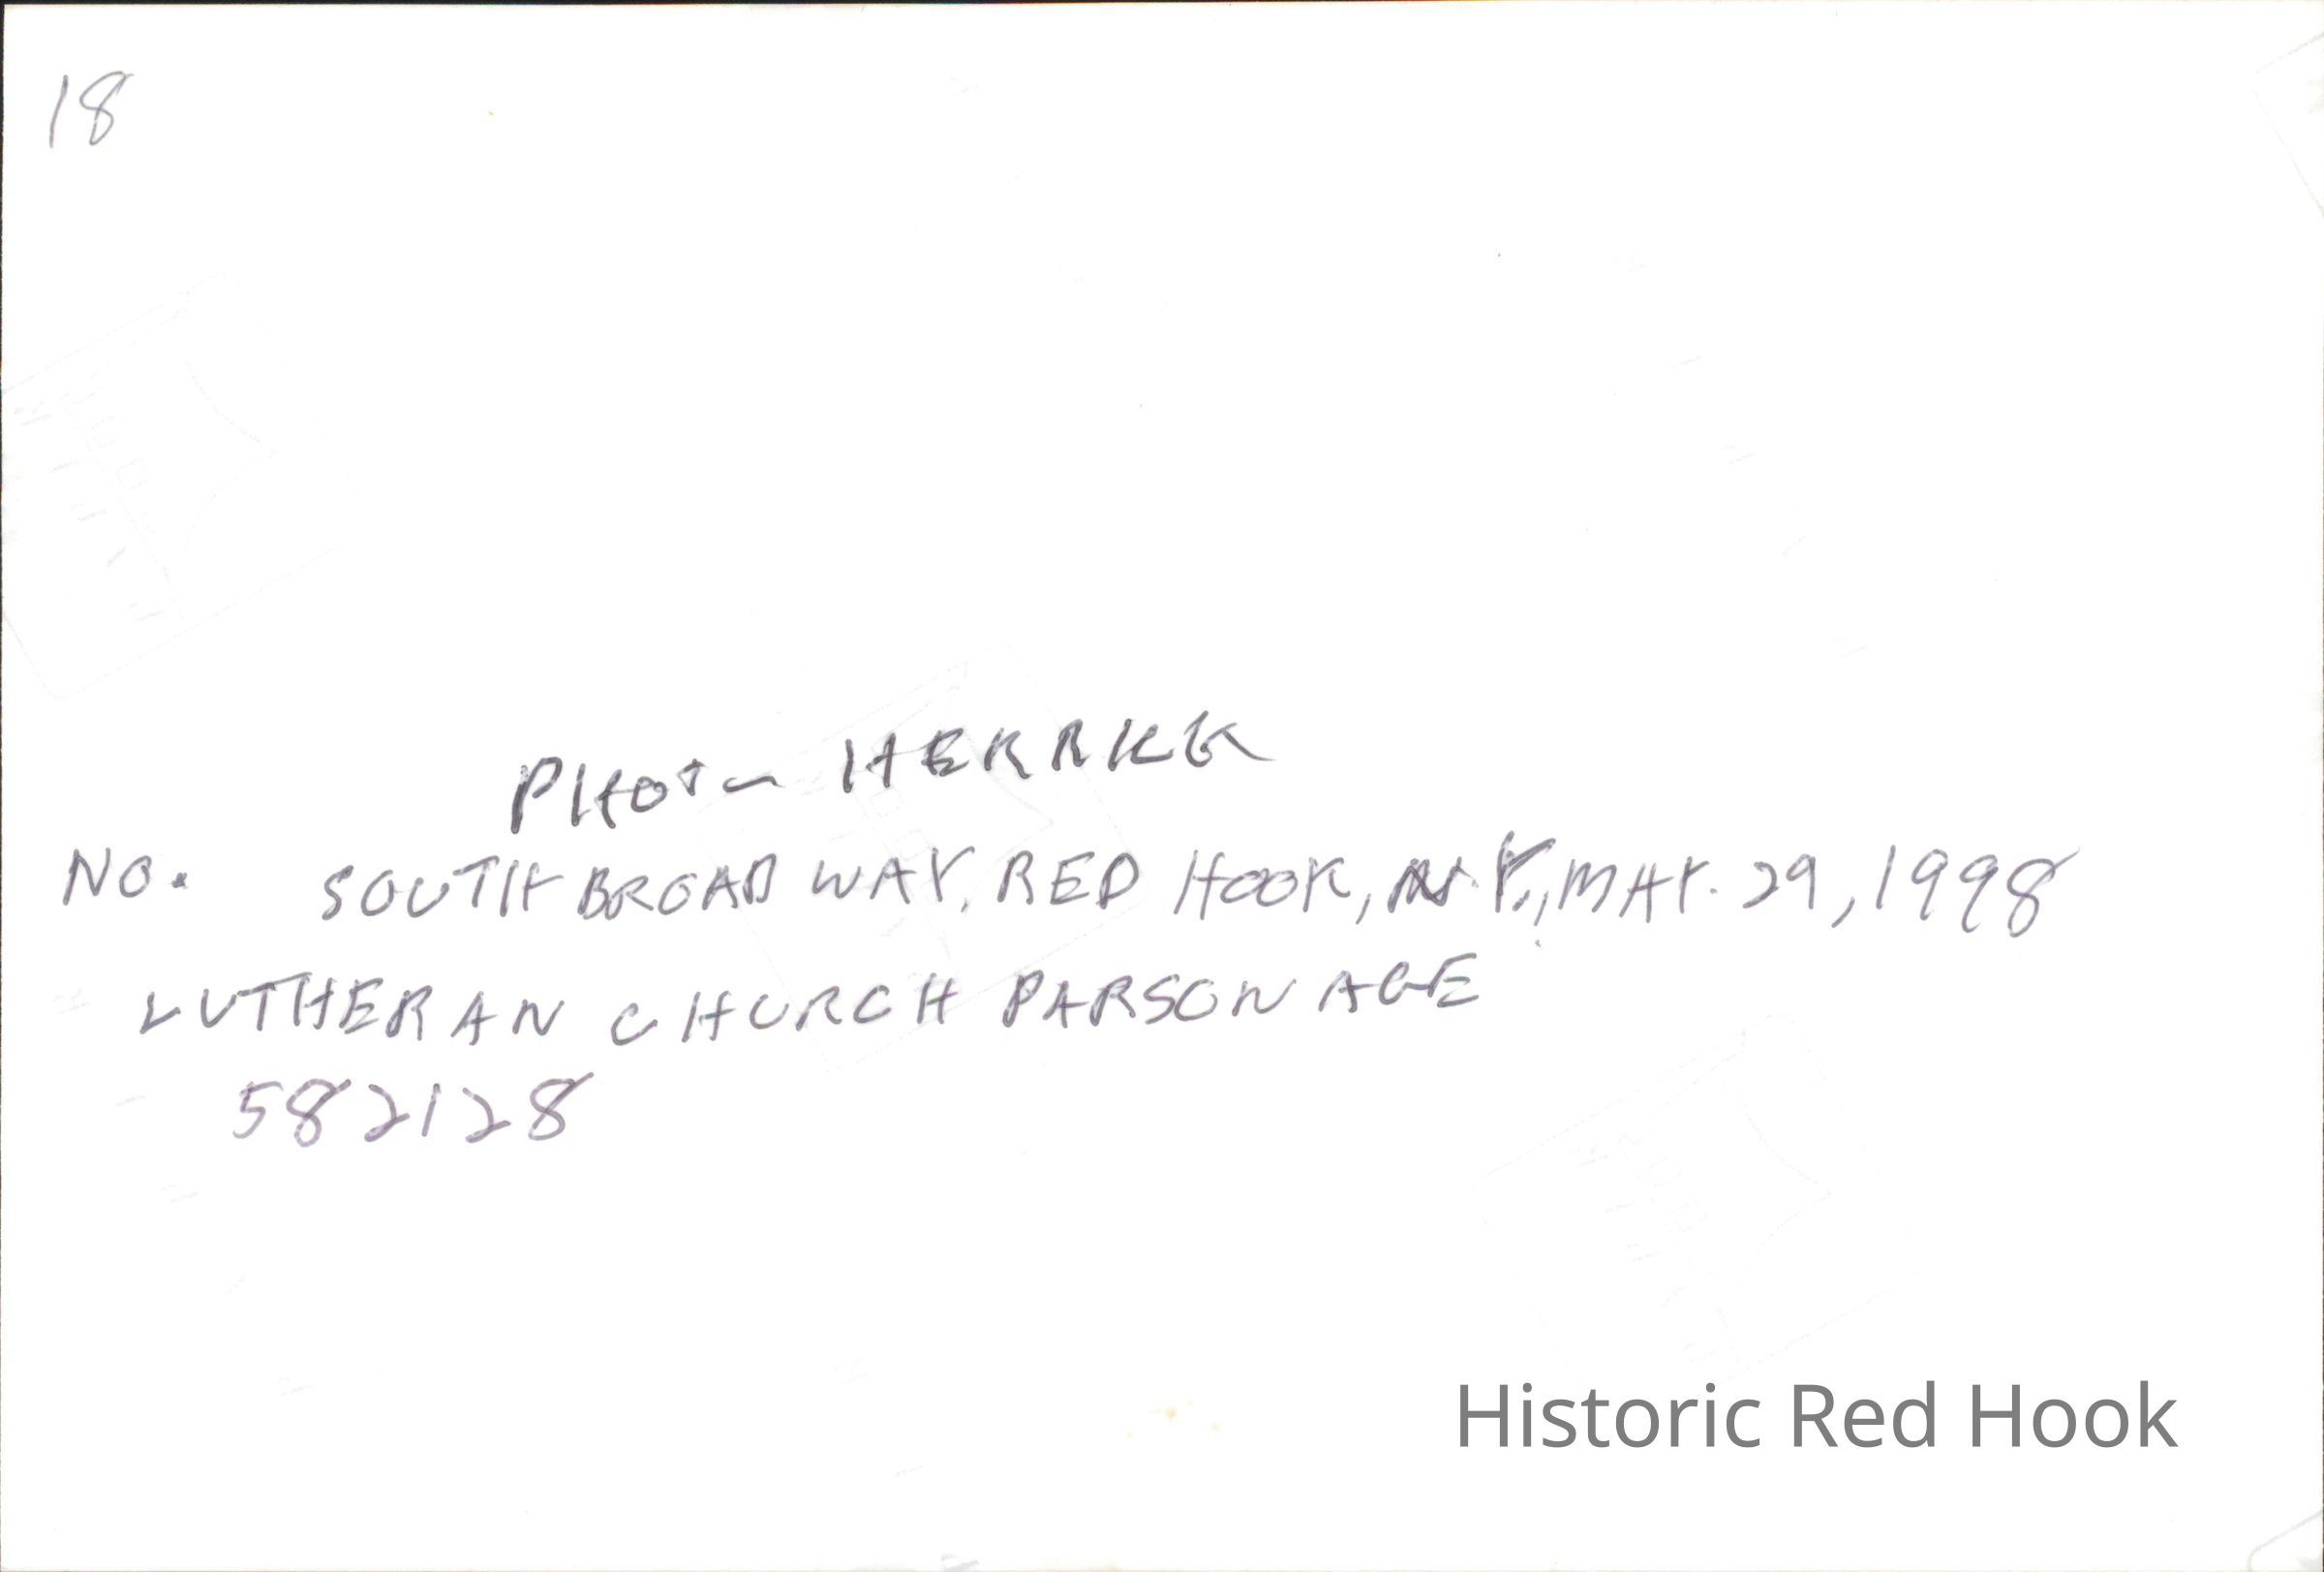 18
PHOTO HERRICK
NO. SOUTH BROADWAY, RED HOOK, N.Y., MAY. 29, 1998
LUTHERAN CHURCH PARSONAGE
582128
Historic Red Hook